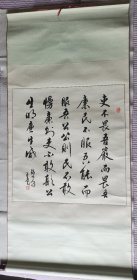 吏不畏吾嚴而畏吾
廉民不服吾能而
服吾公公則民不敢
慢廉則吏不敢欺公
生明廉生威